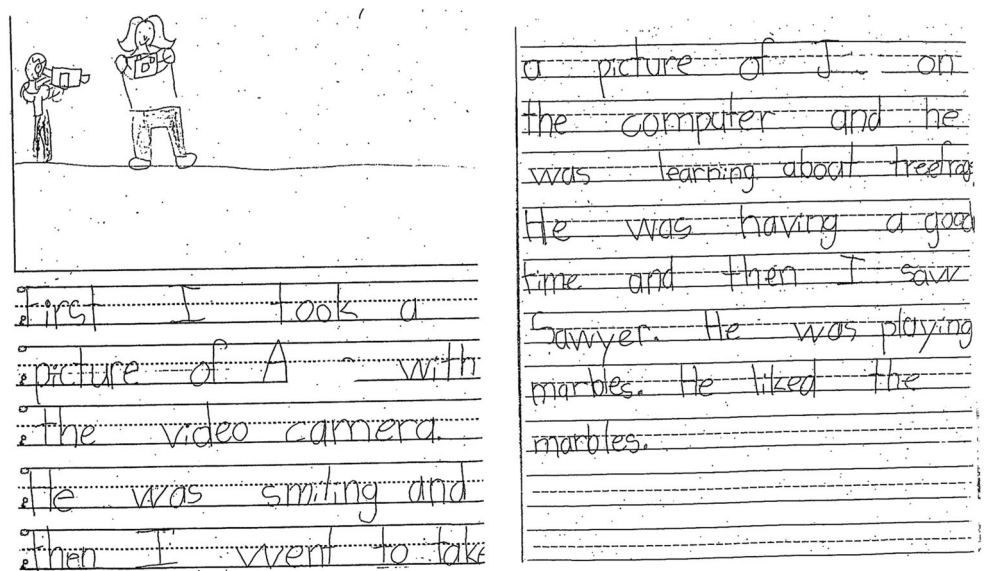 First I took a
picture of A with
the video camera.
He was smiling and
then I went to take
a picture of J on
the computer and he
was learning about treefrogs
He was having a good
time and then I saw
Sawyer. He was playing
marbles. He liked the
marbles.